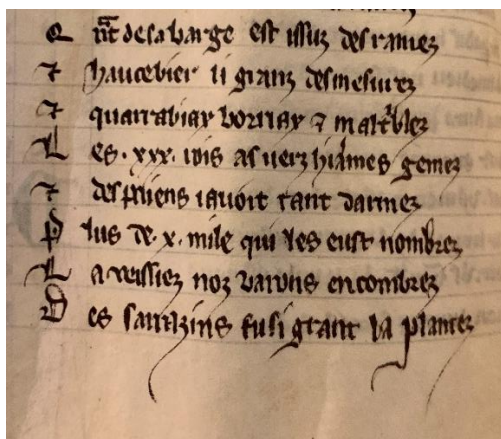 Q nt de la barge est issuz des ranies
τ haucebier li granz desmesurez
τ quarrabiax bornax τ malt'blez
L es . xxx . rois as uerz hiaumes gemez
τ des paiens i auoit tant darmez
P lus de . x . mile qui les eust nombrez
L a ueissiez noz barons encombrez
D es sarrazins fu si grant la plantez